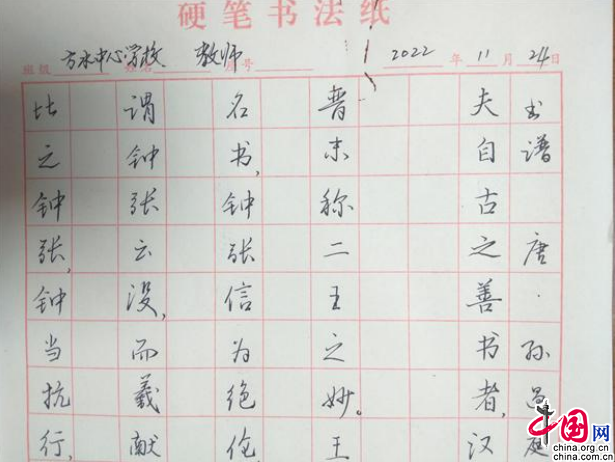 硬笔书法纸
班级 方水中心学校 姓名 教师 号 2022 年 11 月 24 日
书谱 唐·孙过庭
夫自古之善书者,汉
晋末称二王之妙。王
名书,钟张信为绝伦,
谓钟张云没,而羲献
比之钟张,钟当抗行,
中国网
china.org.cn
china.com.cn